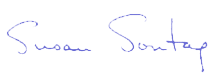 Susan Sontag